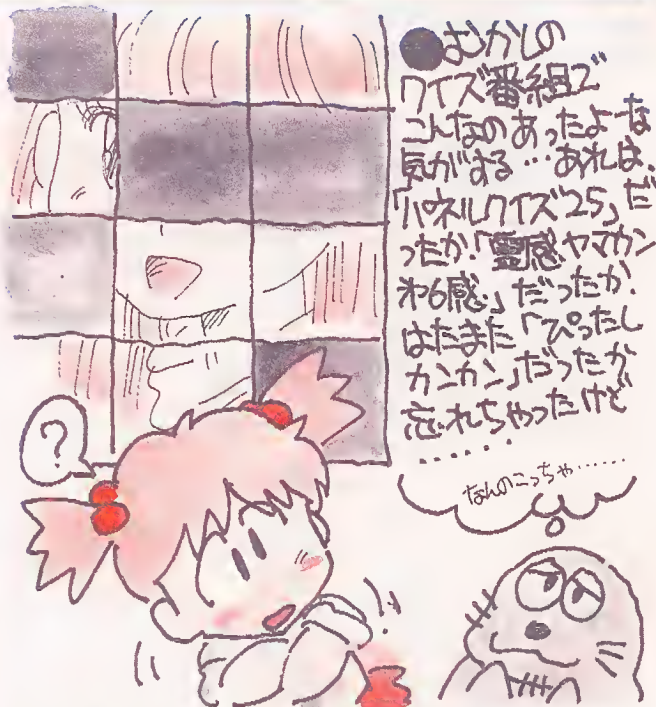 ●むかしの
クイズ番組で
こんなのあったよーな
気がする…あれは、
「パネルクイズ25」だ
ったか「霊感ヤマカン
オ6感」だったか、
はたまた「ぴったし
カンカン」だったか
忘れちゃったけど
……
なんのこっちゃ……
?